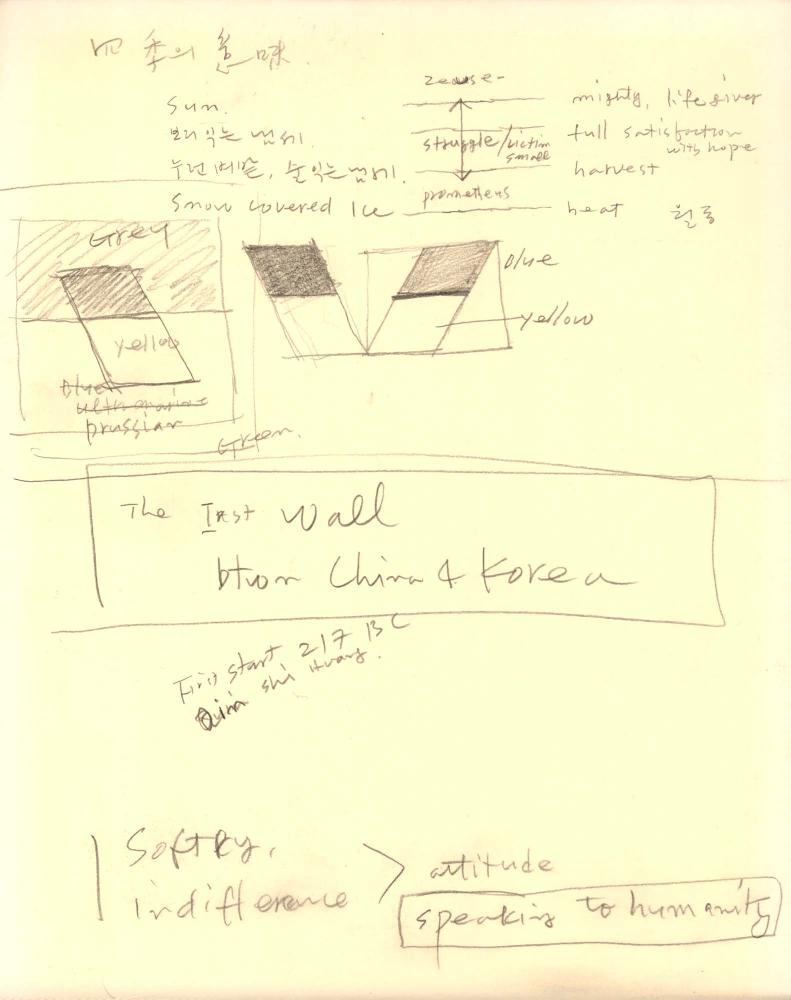 四季의 意味
Sun.
보리 익는 냄새.
누런 벼 말, 술 익는 냄새.
Snow covered Ice
zeuse-
struggle/victim
small
prometheus
mighty, life giver
full satisfaction
with hope
harvest
heat 월동
Grey
yellow
ultramarine
prussian
blue
yellow
Green.
The Irst Wall
btwn China & Korea
First start 217 BC
Qin shi Huang.
indifference
attitude
speaking to humanity